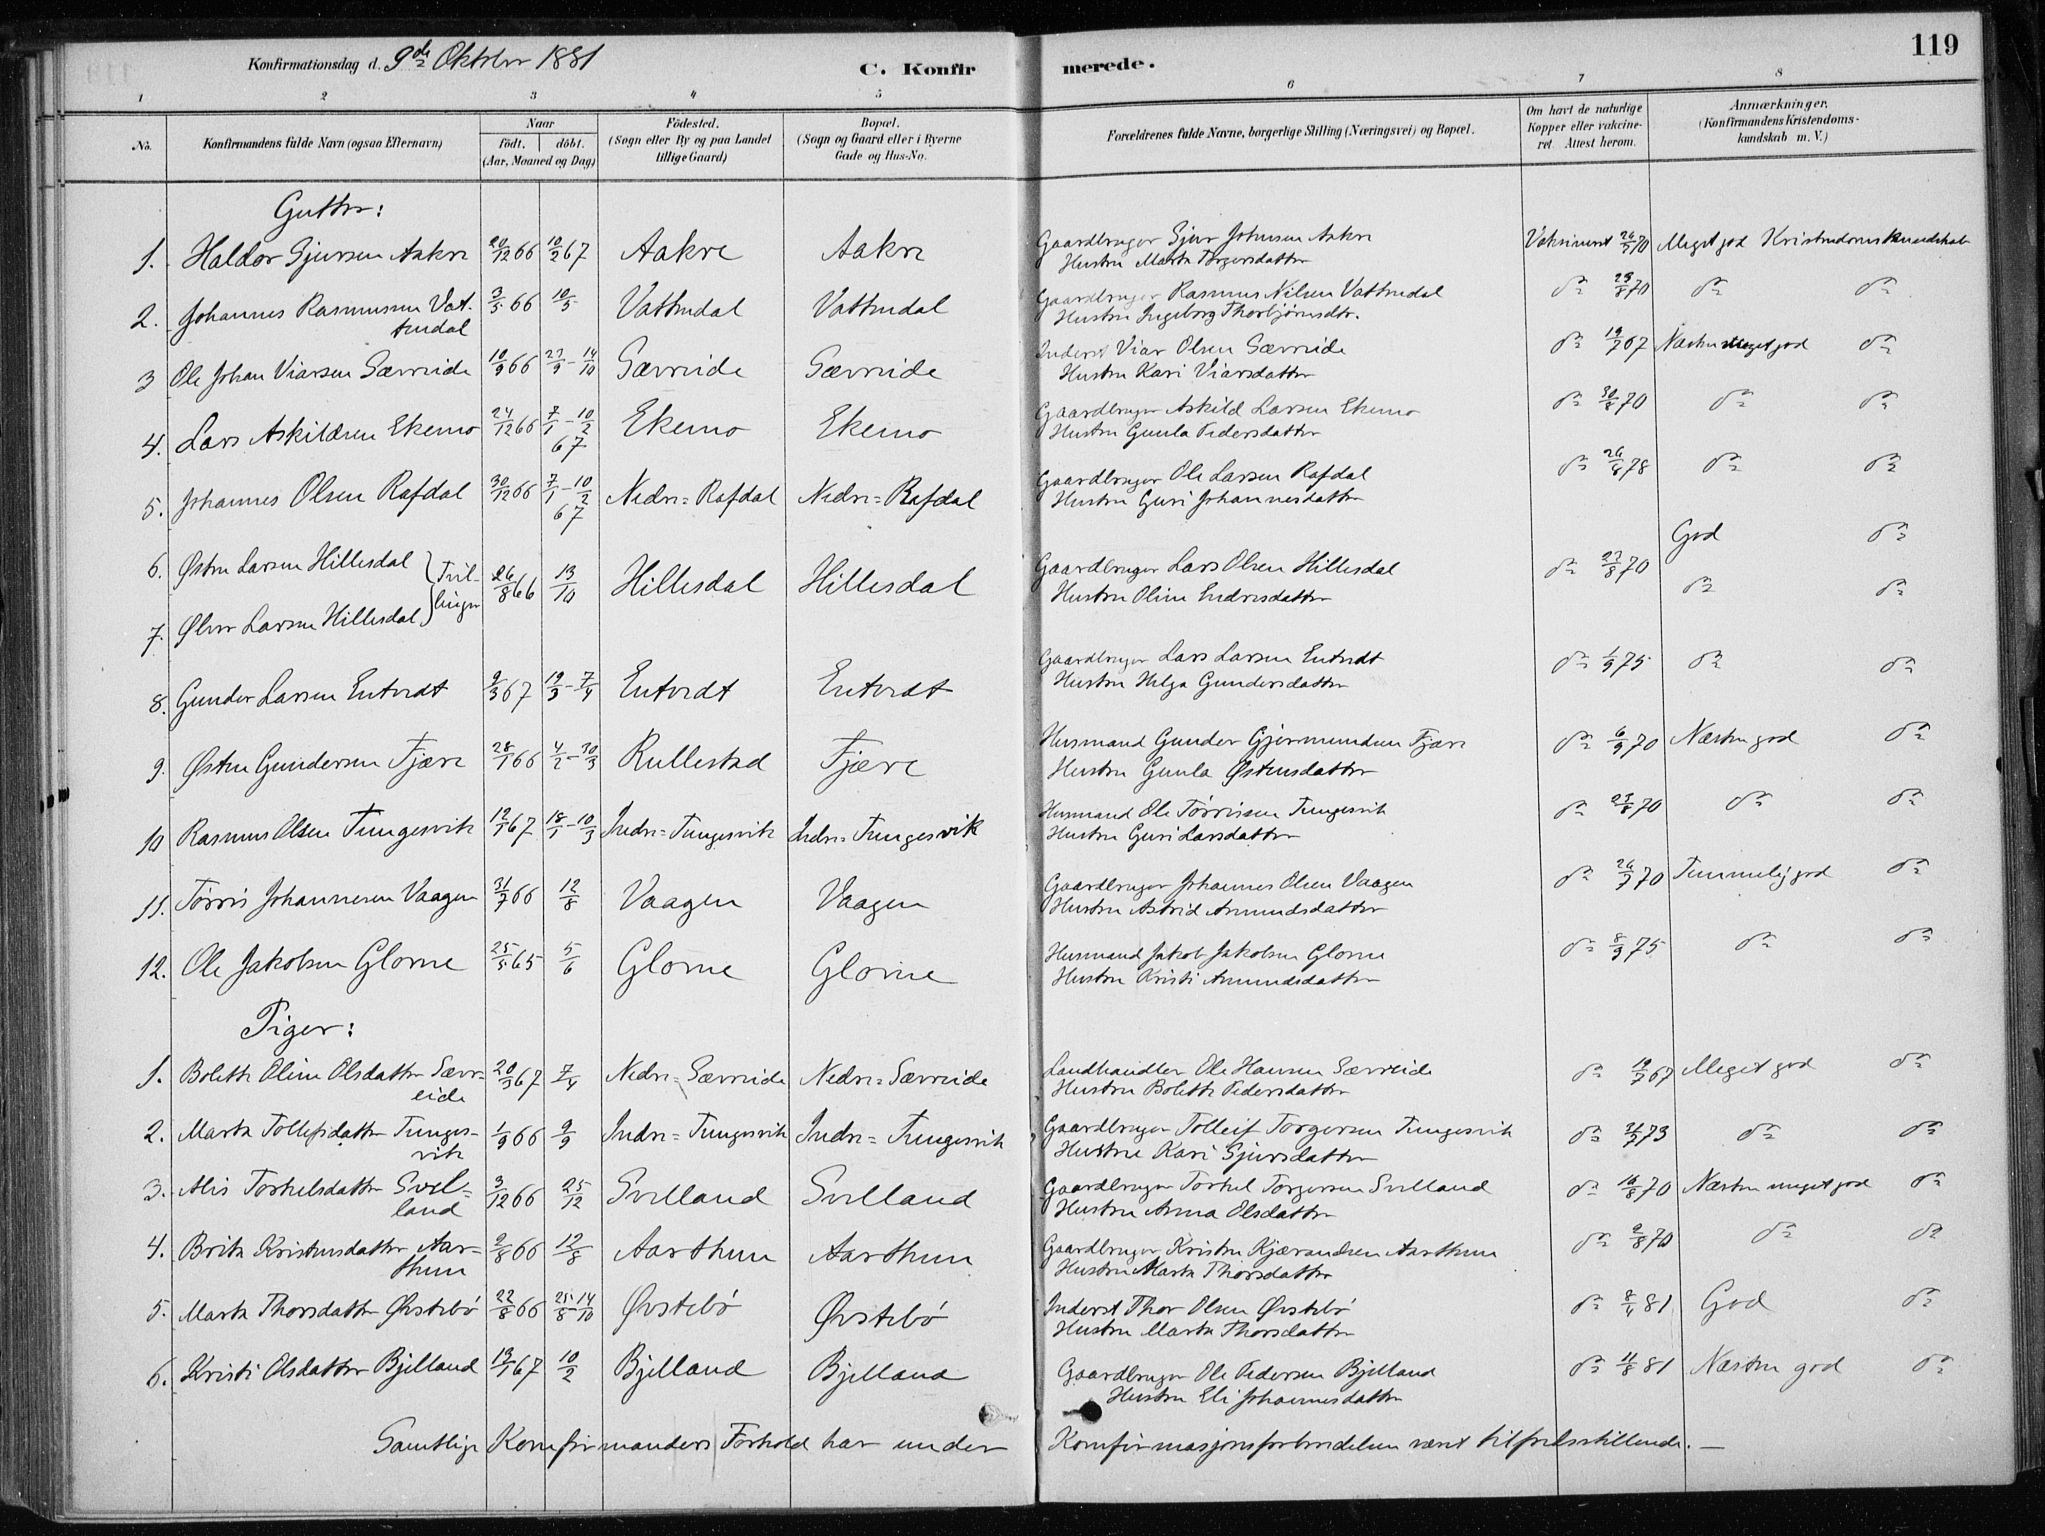 119
Konfirmationsdag d. 9de Oktober 1881
C. Konfirmerede.
1 2 3 4 5 6 7 8
No. Konfirmandens fulde Navn (ogsaa Efternavn) Naar født. døbt. (Aar, Maaned og Dag) Fødested. (Sogn eller By og paa Landet tillige Gaard) Bopæl. (Sogn og Gaard eller i Byerne Gade og Hus-No. Forældrenes fulde Navne, borgerlige Stilling (Næringsvei) og Bopæl. Om havt de naturlige Kopper eller vakcineret. Attest herom. Anmærkninger. (Konfirmandens Kristendomskundskab m. V.)
Gutter:
1. Haldor Sjursen Aakre 20/12 66 10/2 67 Aakre Aakre Gaardbruger Sjur Johnsen Aakre Vaksineret 26/7 70 Meget god Kristendomskundskab
Hustru Marta Torgersdatter
2. Johannes Rasmussen Vattnedal 3/5 66 10/5 Vattnedal Vattnedal Gaardbruger Rasmus Nilsen Vattnedal do 23/8 70 do do
Hustru Ingeborg Thorbjørnsdtr.
3 Ole Johan Viarsen Særreide 10/9 66 23/9 - 14/10 Særreide Særreide Inderst Viar Olsen Særreide do 19/7 67 Næsten meget god do
Hustru Kari Viarsdatter
4. Lars Askildsen Ekemo 24/12 66 7/1 - 10/2 67 Ekemo Ekemo Gaardbruger Askild Larsen Ekemo do 30/8 70 do do
Hustru Gunla Pedersdatter
5. Johannes Olsen Rafdal 30/12 66 7/1 - 10/2 67 Nedre=Rafdal Nedre=Rafdal Gaardbruger Ole Larsen Rafdal do 26/4 78 do do
Hustru Guri Johannesdatter
6. Østen Larsen Hillesdal } Tvillinger 26/8 66 13/10 Hillesdal Hillesdal Gaardbruger Lars Olsen Hillesdal do 23/8 70 God do
7. Ølver Larsen Hillesdal Hustru Oline Endresdatter do do
8. Gunder Larsen Entvedt 9/3 67 19/3 - 7/4 Entvedt Entvedt Gaardbruger Lars Larsen Entvedt do 1/9 75 do do
Hustru Helga Gundersdatter
9. Østen Gundersen Fjære 28/1 66 4/2 - 30/3 Rullestad Fjære Husmand Gunder Gjermundsen Fjære do 6/9 70 Næsten god do
Hustru Gunla Østensdatter
10 Rasmus Olsen Tungesvik 12/1 67 18/1 - 10/3 Indre=Tungesvik Indre=Tungesvik Husmand Ole Tørrissen Tungesvik do 23/8 70 do do
Hustru Guri Larsdatter
11. Tørris Johannesen Vaagen 31/7 66 12/8 Vaagen Vaagen Gaardbruger Johannes Olsen Vaagen do 26/7 70 Temmelig god do
Hustru Astrid Amundsdatter
12. Ole Jakobsen Glorne 25/5 65 5/6 Glorne Glorne Husmand Jakob Jakobsen Glorne do 8/9 75 do do
Hustru Kristi Amundsdatter
Piger:
1. Bolette Oline Olsdatter Særreide 20/3 67 7/4 Nedre=Særreide Nedre=Særreide Landhandler Ole Hansen Særreide do 19/7 67 Meget god do
Hustru Bolette Pedersdatter
2. Marta Tollefsdatter Tungesvik 1/9 66 9/9 Indre=Tungesvik Indre=Tungesvik Gaardbruger Tolleif Torgersen Tungesvik do 2/7 73 do do
Hustru Kari Sjursdatter
3. Alis Torkelsdatter Svelland 3/12 66 25/12 Svelland Svelland Gaardbruger Torkel Torgersen Svelland do 16/8 70 Næsten meget god do
Hustru Anna Olsdatter
4. Brita Kristensdatter Aarthun 2/8 66 12/8 Aarthun Aarthun Gaardbruger Kristen Kjærandsen Aarthun do 2/8 70 do do
Hustru Marta Thorsdatter
5. Marta Thorsdatter Øvstebø 22/8 66 25/8 - 14/10 Øvstebø Øvstebø Inderst Thor Olsen Øvstebø do 8/4 81 God do
Hustru Marta Thorsdatter
6. Kristi Olsdatter Bjelland 13/1 67 10/2 Bjelland Bjelland Gaardbruger Ole Pedersen Bjelland do 11/8 81 Næsten god do
Hustru Eli Johannesdatter
Samtlige Konfirmanders Forhold har under Konfirmasjonsforberedelsen været tilfredsstillende. —